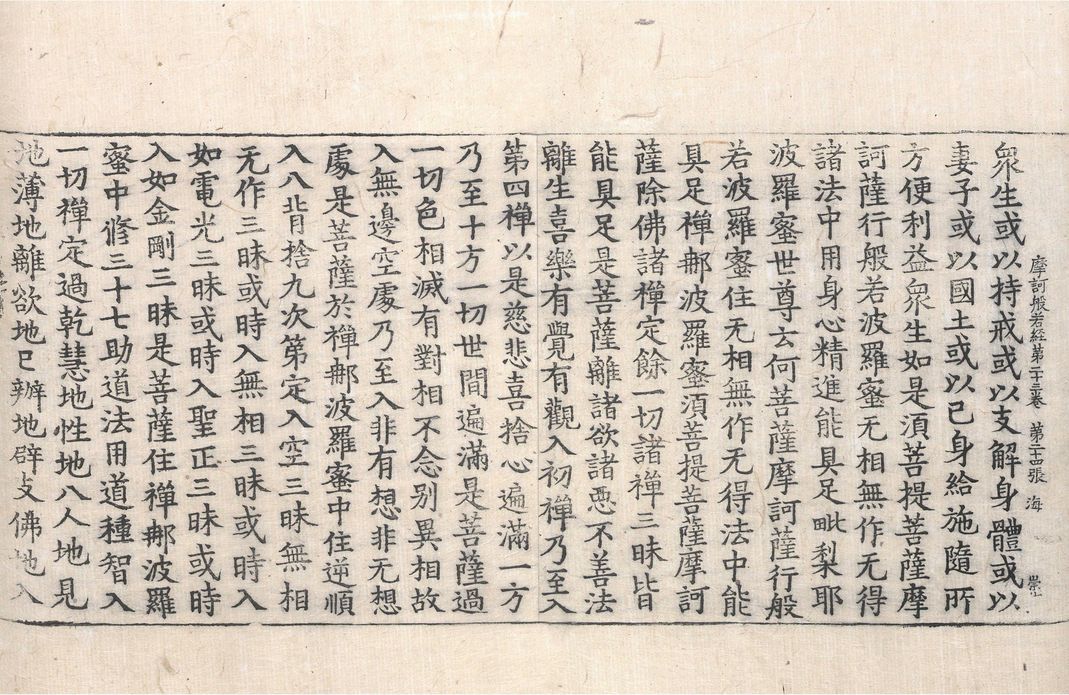 摩訶般若經第二十三卷 第二十四張 海
衆生或以持戒或以支解身體或以
妻子或以國土或以己身給施隨所
方便利益衆生如是須菩提菩薩摩
訶薩行般若波羅蜜无相無作无得
諸法中用身心精進能具足毗梨耶
波羅蜜世尊云何菩薩摩訶薩行般
若波羅蜜住无相無作无得法中能
具足禪那波羅蜜須菩提菩薩摩訶
薩除佛諸禪定餘一切諸禪三昧皆
能具足是菩薩離諸欲諸惡不善法
離生喜樂有覺有觀入初禪乃至入
第四禪以是慈悲喜捨心遍滿一方
乃至十方一切世間遍滿是菩薩過
一切色相滅有對相不念别異相故
入無邊空處乃至入非有想非无想
處是菩薩於禪那波羅蜜中住逆順
入八背捨九次第定入空三昧無相
无作三昧或時入無相三昧或時入
如電光三昧或時入聖正三昧或時
入如金剛三昧是菩薩住禪那波羅
蜜中修三十七助道法用道種智入
一切禪定過乾慧地性地八人地見
地薄地離欲地已辦地辟支佛地入